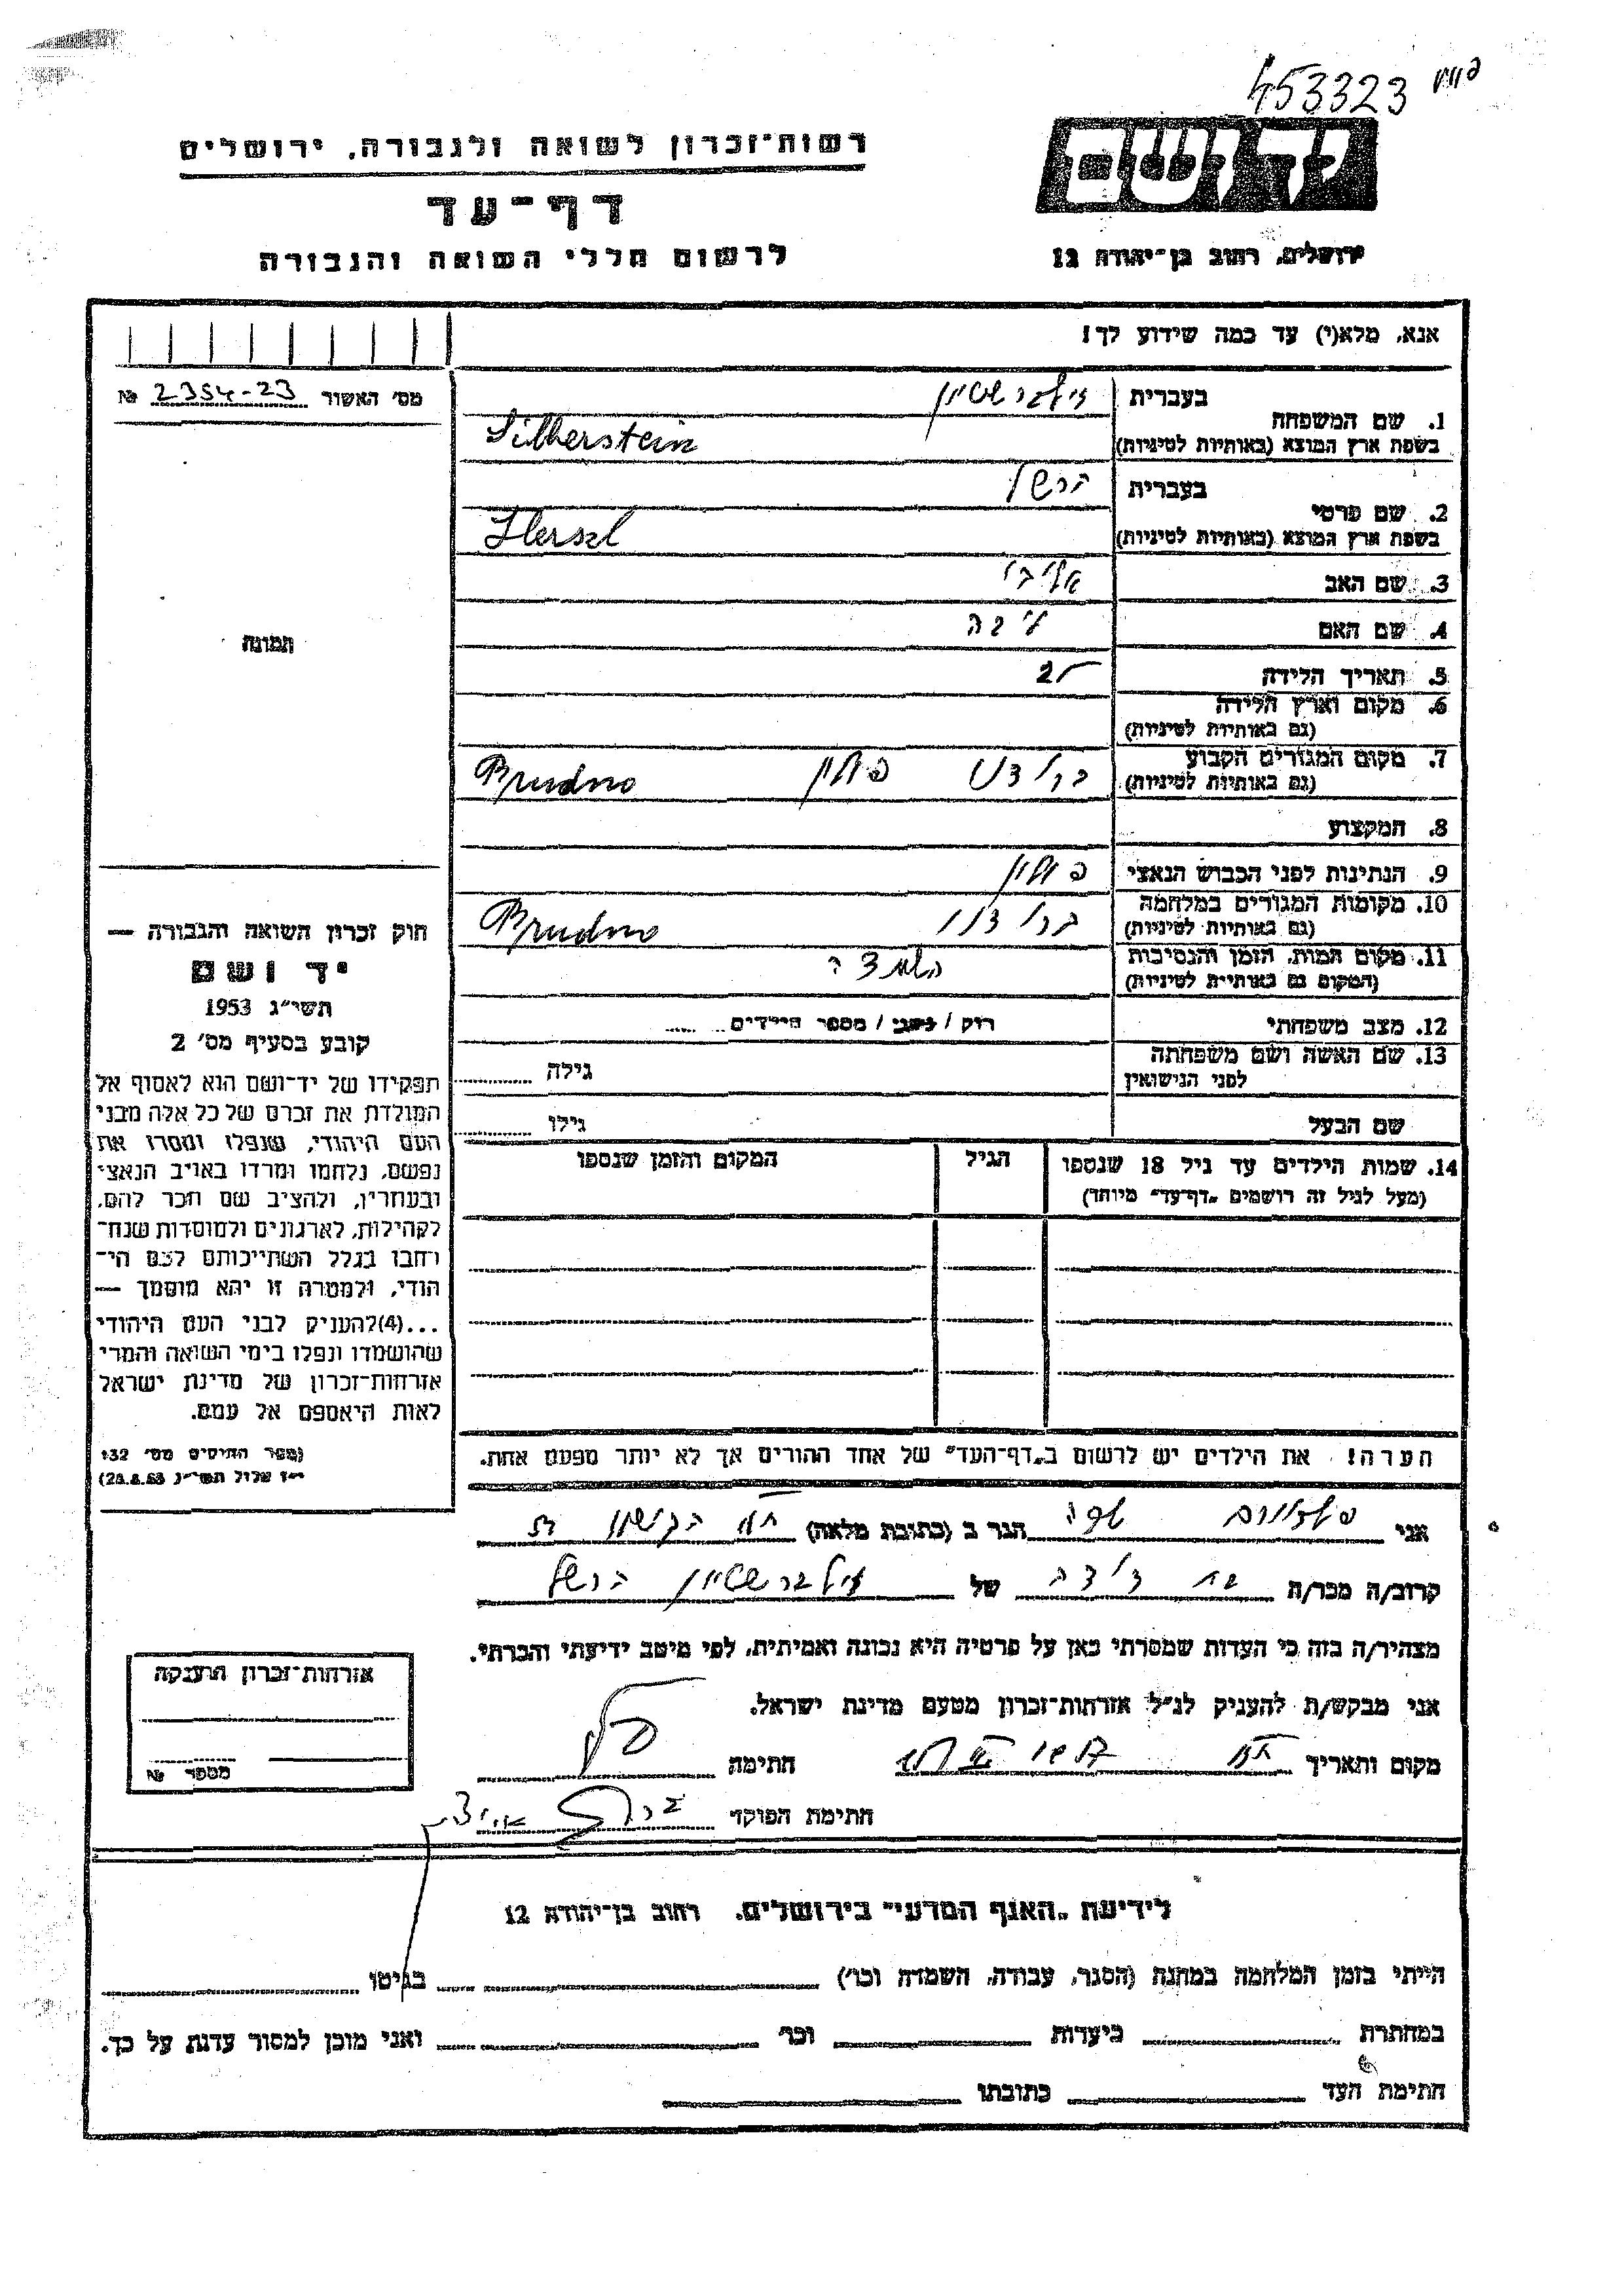 453323
רשות־זכרון לשואה ולגבורה, ירושלים
דף־עד
לרשום חללי השואה והגבורה
יד ושם
ירושלים, רחוב בן־יהודה 12
אנא, מלא(י) עד כמה שידוע לך!
מס' האשור 2354-23 №
1. שם המשפחה
בעברית זילברשטיין
בשפת ארץ המוצא (באותיות לטיניות) Silberstein
2. שם פרטי
בעברית הרשל
בשפת ארץ המוצא (באותיות לטיניות) Herszl
3. שם האב
4. שם האם
5. תאריך הלידה
6. מקום וארץ הלידה
(גם באותיות לטיניות)
7. מקום המגורים הקבוע פולין Brudno
(גם באותיות לטיניות)
8. המקצוע
9. הנתינות לפני הכבוש הנאצי פולין
10. מקומות המגורים במלחמה Brudno
(גם באותיות לטיניות)
11. מקום המות, הזמן והנסיבות
(המקום גם באותיות לטיניות)
12. מצב משפחתי רוק / נשוי / מספר הילדים
13. שם האשה ושם משפחתה גילה
לפני הנישואין
שם הבעל גילו
14. שמות הילדים עד גיל 18 שנספו הגיל המקום והזמן שנספו
(מעל לגיל זה רושמים „דף־עד” מיוחד)
הערה! את הילדים יש לרשום ב„דף־העד” של אחד ההורים אך לא יותר מפעם אחת.
תמונה
חוק זכרון השואה והגבורה —
יד ושם
תשי״ג 1953
קובע בסעיף מס׳ 2
תפקידו של יד־ושם הוא לאסוף אל
המולדת את זכרם של כל אלה מבני
העם היהודי, שנפלו ומסרו את
נפשם, נלחמו ומרדו באויב הנאצי
ובעוזריו, ולהציב שם וזכר להם,
לקהילות, לארגונים ולמוסדות שנח־
רבו בגלל השתייכותם לעם הי־
הודי, ולמטרה זו יהא מוסמך —
...(4) להעניק לבני העם היהודי
שהושמדו ונפלו בימי השואה והמרי
אזרחות־זכרון של מדינת ישראל
לאות היאספם אל עמם.
(ספר החוקים מס׳ 132
י״ז אלול תשי״ג 28.8.53)
אני הגר ב (כתובת מלאה)
קרוב/ה מכר/ה של זילברשטיין הרשל
מצהיר/ה בזה כי העדות שמסרתי כאן על פרטיה היא נכונה ואמיתית, לפי מיטב ידיעתי והכרתי.
אני מבקש/ת להעניק לנ״ל אזרחות־זכרון מטעם מדינת ישראל.
מקום ותאריך חתימה
חתימת הפוקד
אזרחות־זכרון הוענקה
מספר №
לידיעת „האגף המדעי” בירושלים, רחוב בן־יהודה 12
הייתי בזמן המלחמה במחנה (הסגר, עבודה, השמדה וכו׳) בגיטו
במחתרת ביערות וכו׳ ואני מוכן למסור עדות על כך.
חתימת העד כתובתו